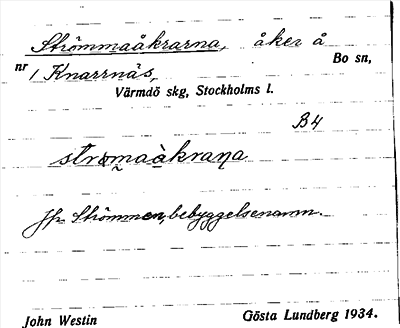 Strömmaåkrarna, åker å
nr 1 Knarrnäs, Bo sn,
Värmdö skg, Stockholms l.
B4
stromaàkraṇa
Jfr Strömmen, bebyggelsenamn.
John Westin Gösta Lundberg 1934.